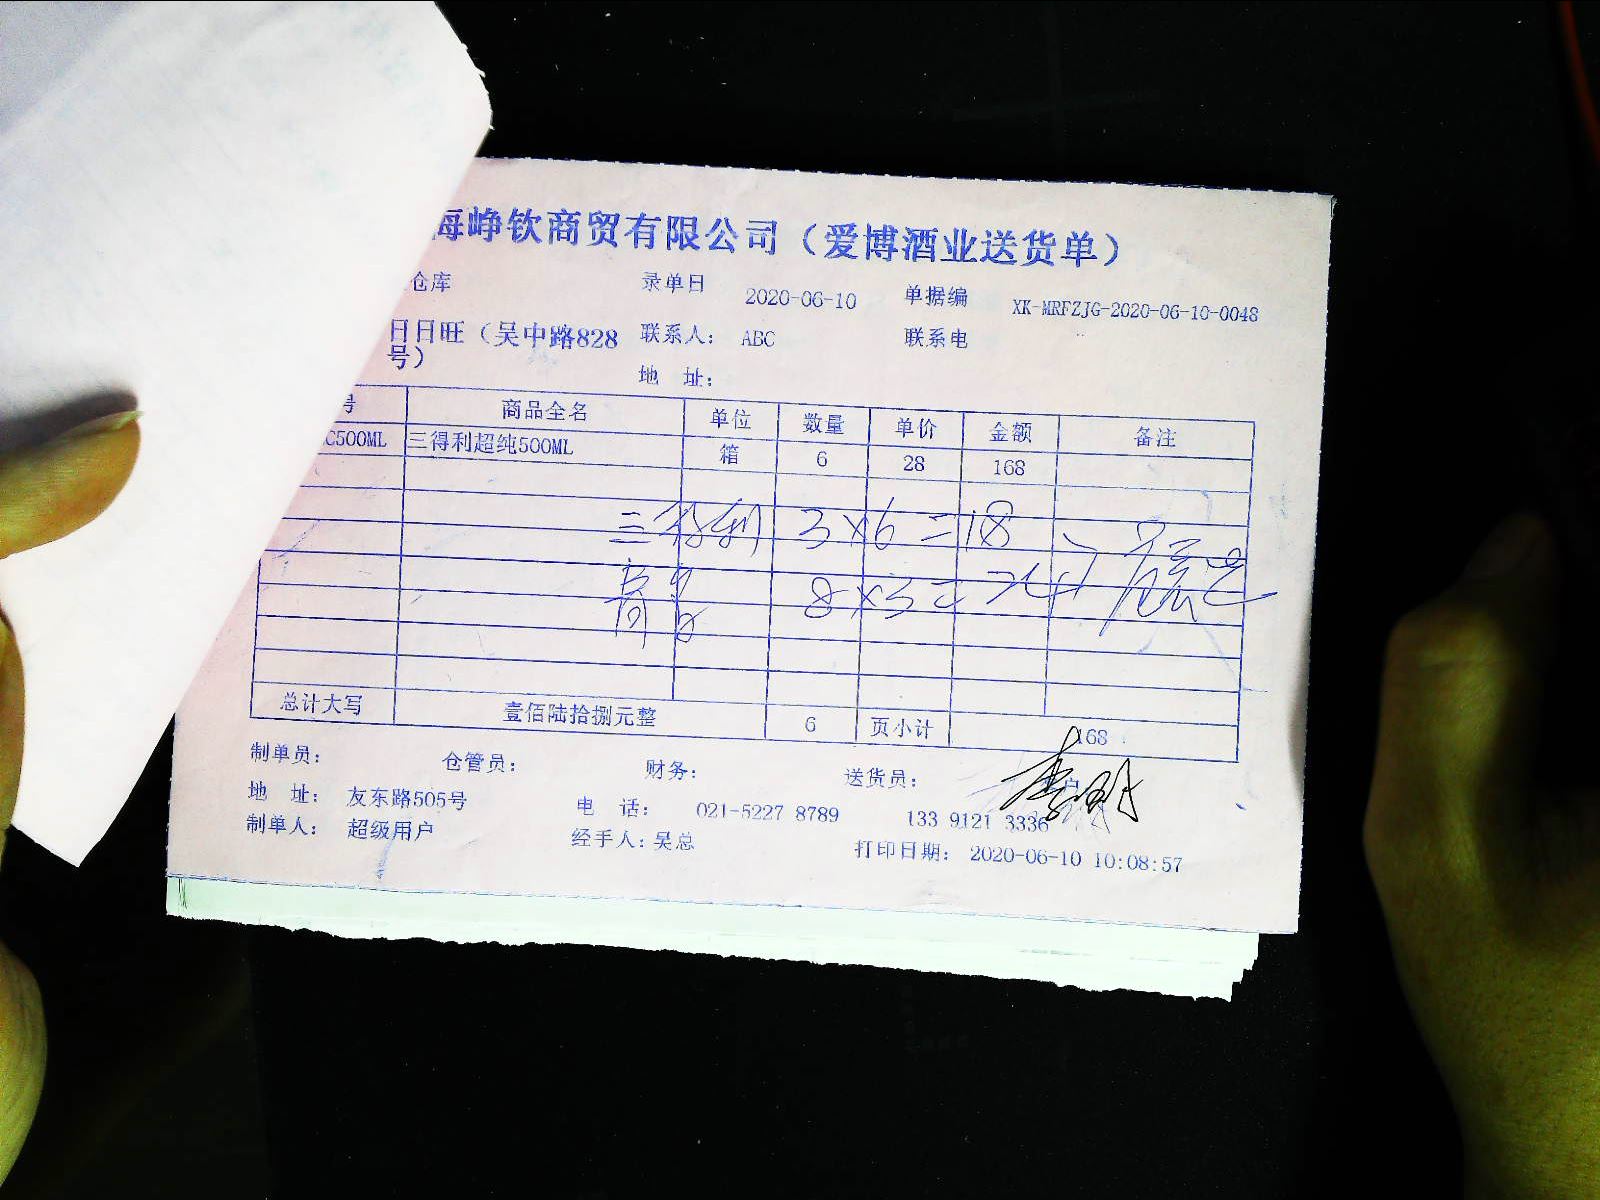 海峥钦商贸有限公司（爱博酒业送货单）
仓库 录单日 2020-06-10 单据编 XK-MRFZJG-2020-06-10-0048
日日旺（吴中路828号） 联系人： ABC 联系电
地 址：
号 商品全名 单位 数量 单价 金额 备注
C500ML 三得利超纯500ML 箱 6 28 168
三得利 3×6=18
8×3=24
总计大写 壹佰陆拾捌元整 6 页小计 168
制单员： 仓管员： 财务： 送货员： 客户
地 址： 友东路505号 电 话： 021-5227 8789 133 9121 3336
制单人： 超级用户 经手人：吴总 打印日期： 2020-06-10 10:08:57